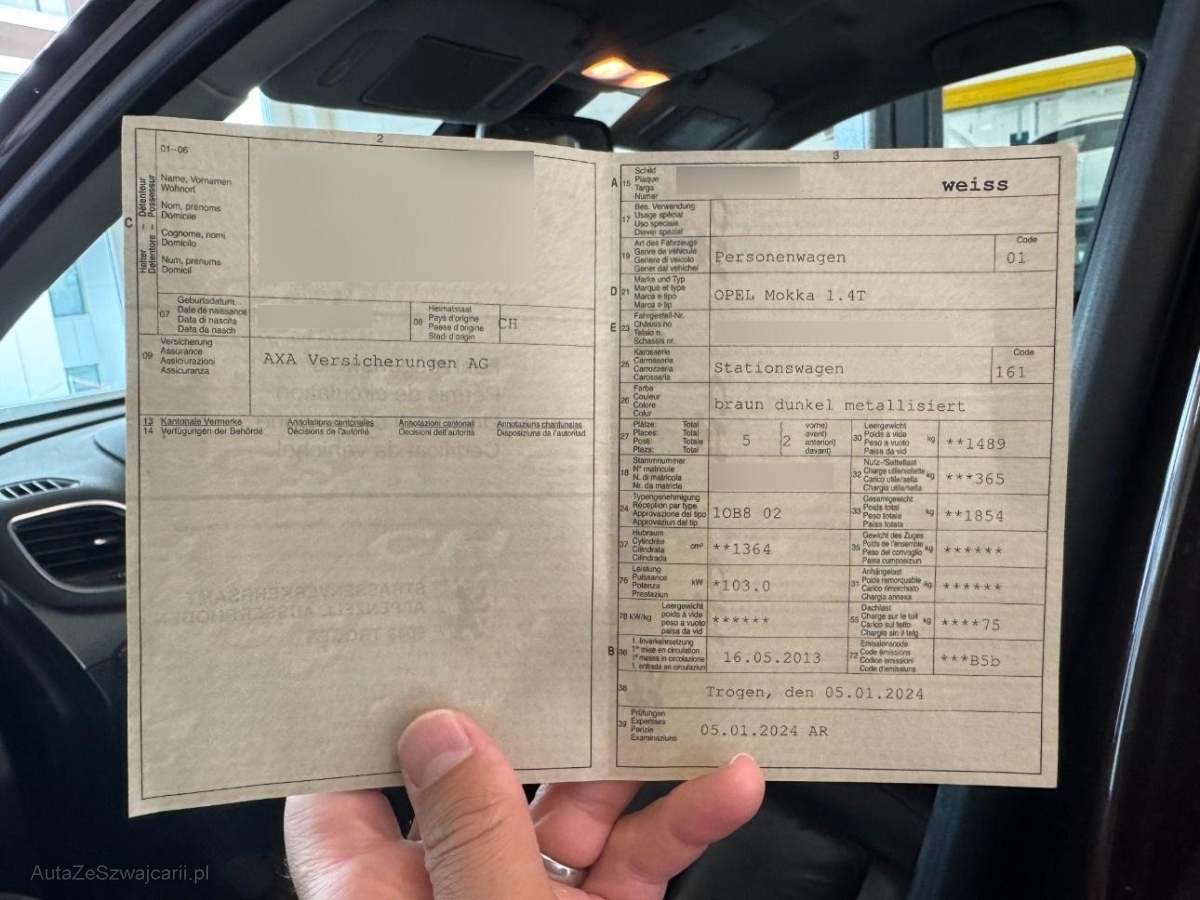 2
01–06
C
Halter – Détenteur
Detentore – Possessur
Name, Vornamen
Wohnort
Nom, prénoms
Domicile
Cognome, nomi
Domicilio
Num, prenums
Domicil
07
Geburtsdatum
Date de naissance
Data di nascita
Data da nasch
08
Heimatstaat
Pays d'origine
Paese d'origine
Stadi d'origin
CH
09
Versicherung
Assurance
Assicurazioni
Assicuranza
AXA Versicherungen AG
13
14
Kantonale Vermerke
Verfügungen der Behörde
Annotations cantonales
Décisions de l'autorité
Annotazioni cantonali
Decisioni dell'autorità
Annotaziuns chantunalas
Disposiziuns da l'autoritad
3
A
15
Schild
Plaque
Targa
Numer
weiss
17
Bes. Verwendung
Usage spécial
Uso speciale
Diever spezial
19
Art des Fahrzeugs
Genre de véhicule
Genere di veicolo
Gener dal vehichel
Personenwagen
Code
01
D
21
Marke und Typ
Marque et type
Marca e tipo
Marca e tip
OPEL Mokka 1.4T
E
23
Fahrgestell-Nr.
Châssis no
Telaio n.
Schassis nr.
25
Karosserie
Carrosserie
Carrozzeria
Carossaria
Stationswagen
Code
161
26
Farbe
Couleur
Colore
Colur
braun dunkel metallisiert
27
Plätze: Total
Places: Total
Posti: Totale
Plazs: Total
5
(2
vorne)
avant)
anteriori)
davant)
30
Leergewicht
Poids à vide
Peso a vuoto
Paisa da vid
kg
**1489
18
Stammnummer
N° matricule
N. di matricola
Nr. da matricla
32
Nutz-/Sattellast
Charge utile/sellette
Carico utile/sella
Chargia utila/sella
kg
***365
24
Typengenehmigung
Réception par type
Approvazione del tipo
Approvaziun dal tip
1OB8 02
33
Gesamtgewicht
Poids total
Peso totale
Paisa totala
kg
**1854
37
Hubraum
Cylindrée
Cilindrata
Cilindrada
cm³
**1364
35
Gewicht des Zuges
Poids de l'ensemble
Peso del convoglio
Paisa cumposiziun
kg
******
76
Leistung
Puissance
Potenza
Prestaziun
kW
*103.0
31
Anhängelast
Poids remorquable
Carico rimorchiato
Chargia annexa
kg
******
78 kW/kg
Leergewicht
poids à vide
peso a vuoto
paisa da vid
******
55
Dachlast
Charge sur le toit
Carico sul tetto
Chargia sin il tetg
kg
****75
B
36
1. Inverkehrsetzung
1re mise en circulation
1a messa in circolazione
1. entrada en circulaziun
16.05.2013
72
Emissionscode
Code émissions
Codice emissioni
Code d'emissiuns
***B5b
38
Trogen, den 05.01.2024
39
Prüfungen
Expertises
Perizie
Examinaziuns
05.01.2024 AR
AutaZeSzwajcarii.pl